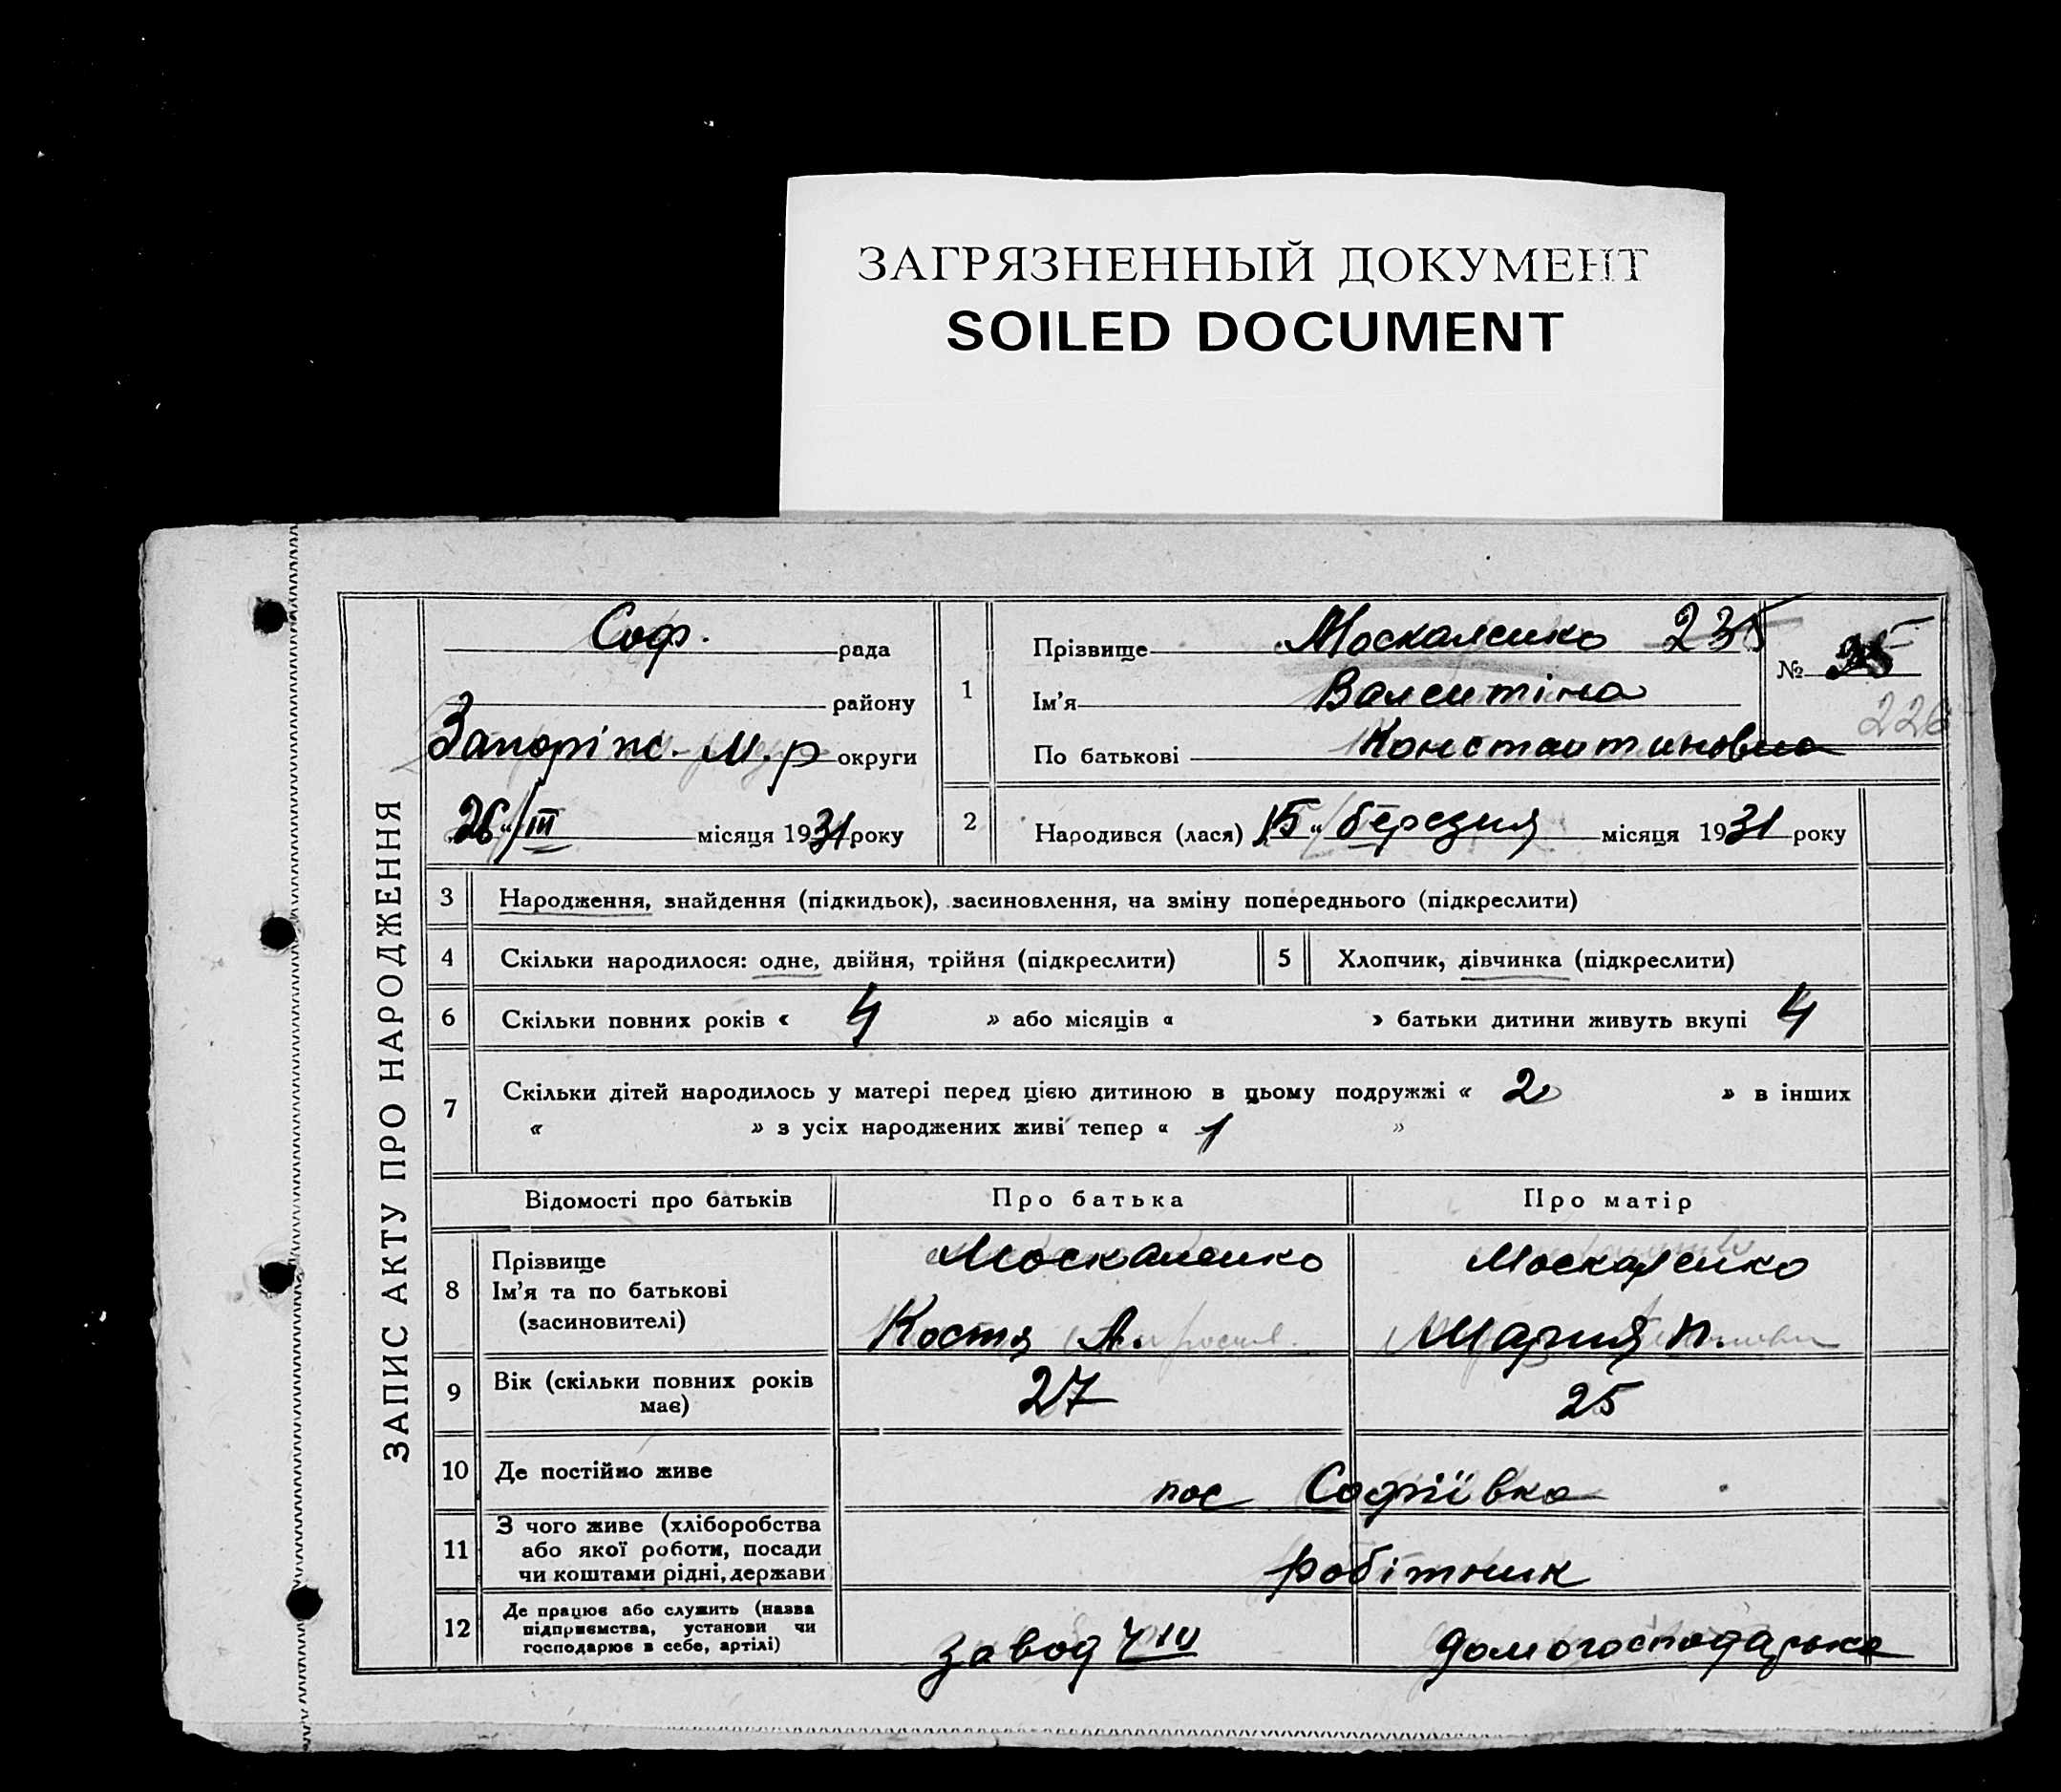 ЗАГРЯЗНЕННЫЙ ДОКУМЕНТ
SOILED DOCUMENT
ЗАПИС АКТУ ПРО НАРОДЖЕННЯ
Соф. рада
району
Запоріж. М. р округи
26/III місяця 1931 року
1
Прізвище Москаленко 235
Ім'я Валентіна
По батькові Константиновна
№
226
2 Народився (лася) 15 „ березня місяця 1931 року
3 Народження, знайдення (підкидьок), засиновлення, на зміну попереднього (підкреслити)
4 Скільки народилося: одне, двійня, трійня (підкреслити)
5 Хлопчик, дівчинка (підкреслити)
6 Скільки повних років « 4 » або місяців « » батьки дитини живуть вкупі 4
7 Скільки дітей народилось у матері перед цією дитиною в цьому подружжі « 2 » в інших
« » з усіх народжених живі тепер « 1 »
Відомості про батьків Про батька Про матір
8 Прізвище Москаленко Москаленко
Ім'я та по батькові
(засиновителі) Костя А. Мария П.
9 Вік (скільки повних років
має) 27 25
10 Де постійно живе пос Софіївка
11 З чого живе (хліборобства
або якої роботи, посади
чи коштами рідні, держави робітник
12 Де працює або служить (назва
підприємства, установи чи
господарює в себе, артілі) завод домогосподарька